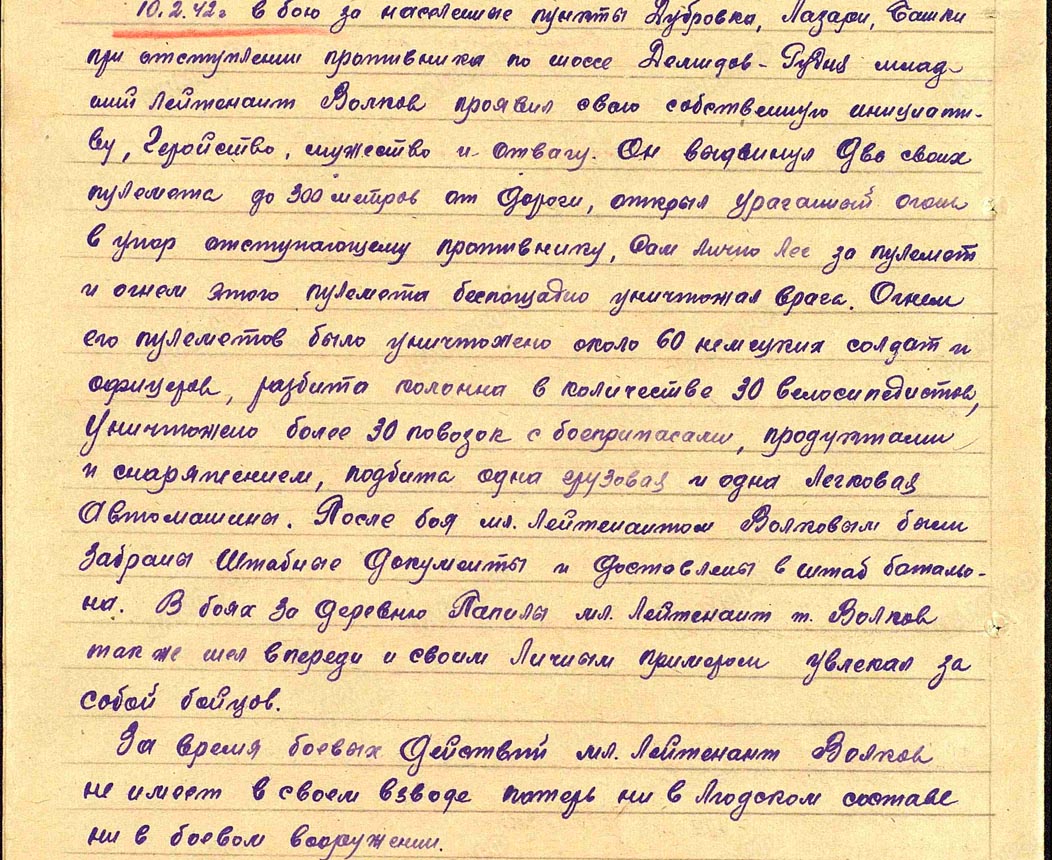 10.2.42г в бою за населенные пункты Дубровка, Лазари, Башки
при отступлении противника по шоссе Демидов-Рудня млад-
ший Лейтенант Волков проявил свою собственную инициати-
ву, Геройство, мужество и отвагу. Он выдвинул два своих
пулемета до 300 метров от дороги, открыл ураганный огонь
в упор отступающему противнику, Сам лично лег за пулемет
и огнем этого пулемета беспощадно уничтожал врага. Огнем
его пулеметов было уничтожено около 60 немецких солдат и
офицеров, разбита колонна в количестве 30 велосипедистов,
Уничтожено более 30 повозок с боеприпасами, продуктами
и снаряжением, подбита одна грузовая и одна Легковая
Автомашины. После боя мл. Лейтенантом Волковым были
Забраны Штабные Документы и доставлены в штаб баталь-
на. В боях за деревню Папилы мл. Лейтенант т. Волков
так же шел впереди и своим Личным примером увлекал за
собой бойцов.
За время боевых Действий мл. Лейтенант Волков
не имеет в своем взводе потерь ни в Людском составе
ни в боевом вооружении.